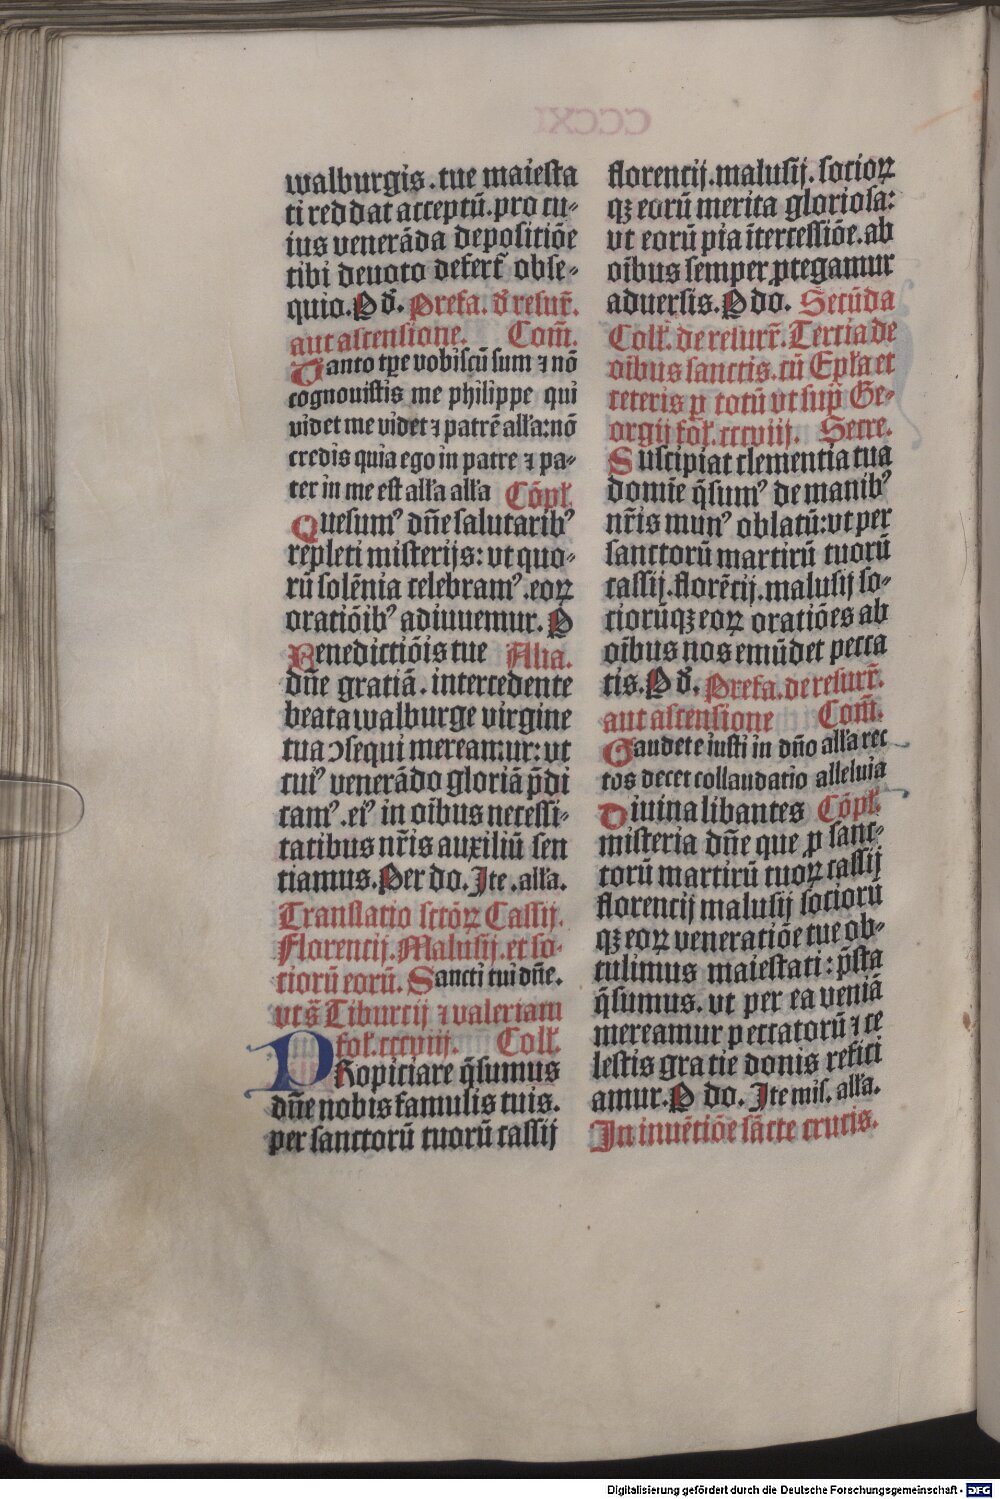 walburgis. tue maiesta
ti reddat acceptū. pro cu-
ius venerāda depositiōe
tibi deuoto defert᷑ obse-
quio. P d̄. Prefa. d̄ resur̄.
aut ascensione. Com̄.
Tanto tp̄e vobiscū sum ⁊ nō
cognouistis me philippe qui
videt me videt ⁊ patrē alła: nō
credis quia ego in patre ⁊ pa-
ter in me est alła alła Cōpł.
Quesumꝰ dn̄e salutaribꝰ
repleti misterijs: vt quo-
rū solēnia celebramꝰ. eoꝝ
oratiōibꝰ adiuuemur. P
Benedictiōis tue Alia.
dn̄e gratiā. intercedente
beata walburge virgine
tua ↄsequi mereamur: vt
cuiꝰ venerādo gloriā p̄di
camꝰ. eiꝰ in oībus necessi-
tatibus nr̄is auxiliū sen
tiamus. Per do. Ite. alła.
Translatio sctōꝝ Cassij.
Florencij. Malusij. et so-
ciorū eorū. Sancti tui dn̄e.
vt s̄ Tiburcij ⁊ valeriani
foł. cccviij. Coll.
PRopiciare q̄sumus
dn̄e nobis famulis tuis.
per sanctorū tuorū cassij
florencij. malusij. socioꝝ
qꝫ eorū merita gloriosa:
vt eorū pia ītercessiōe. ab
oībus semper ꝓtegamur
aduersis. P do. Secūda
Coll. de resurr̄. Tercia de
oībus sanctis. cū Epła et
ceteris ꝑ totū vt sup̄ Ge-
orgij foł. cccviij. Secre.
Suscipiat clementia tua
domīe q̄sumꝰ de manibꝰ
nr̄is munꝰ oblatū: vt per
sanctorū martirū tuorū
cassij. florēcij. malusij so-
ciorūqꝫ eoꝝ oratiōes ab
oībus nos emūdet pecca
tis. P d̄. Prefa. de resurr̄.
aut ascensione Com̄.
Gaudete iusti in dn̄o alła rec
tos decet collaudatio alleluia
Diuina libantes Cōpł.
misteria dn̄e que ꝑ sanc-
torū martirū tuoꝝ cassij
florencij malusij sociorū
qꝫ eoꝝ veneratiōe tue ob-
tulimus maiestati: p̄sta
q̄sumus. vt per ea veniā
mereamur peccatorū ⁊ ce
lestis gracie donis refici
amur. P do. Ite mis. alła.
In inuētiōe sācte crucis.
Digitalisierung gefördert durch die Deutsche Forschungsgemeinschaft - DFG